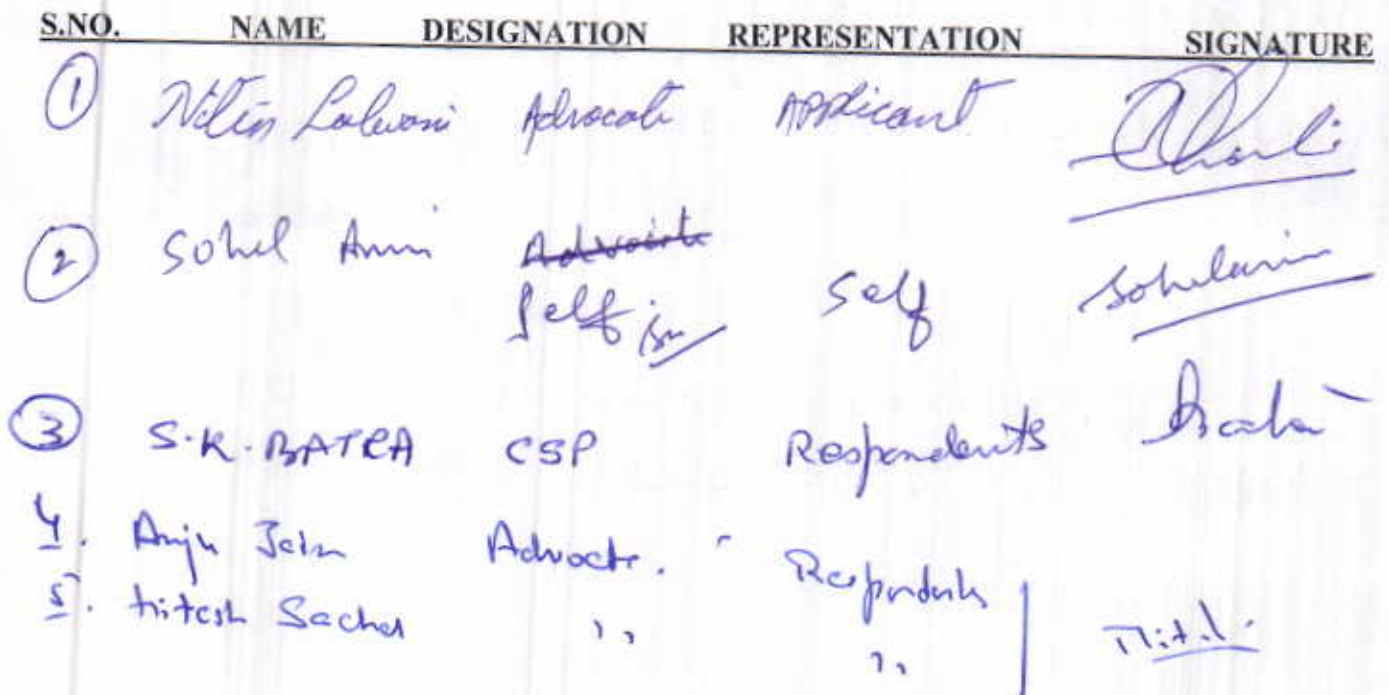 S.NO. NAME DESIGNATION REPRESENTATION SIGNATURE
1 Nitin Lalwani Advocate Applicant
2 Sohel Amin Advocate Self
Self
3 S.K. BATRA CSP Respondents
4. Anju Jain Advocate. Respondents
5. Hitesh Sachar ,, ,,